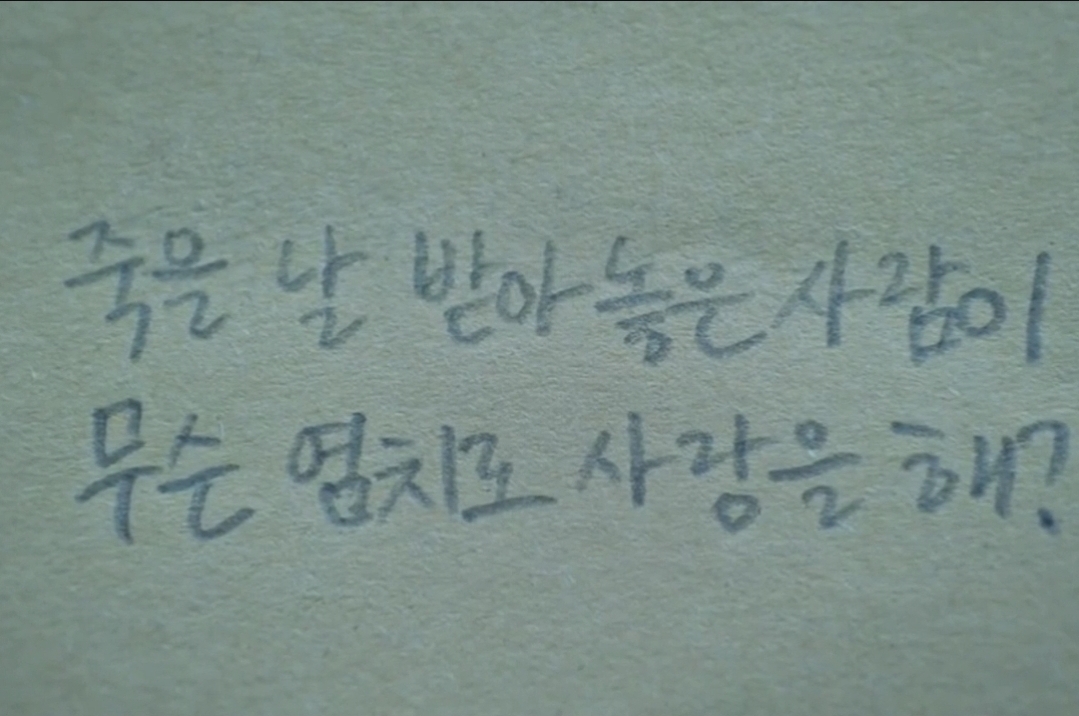 죽을 날 받아 놓은 사람이
무슨 염치로 사랑을 해?